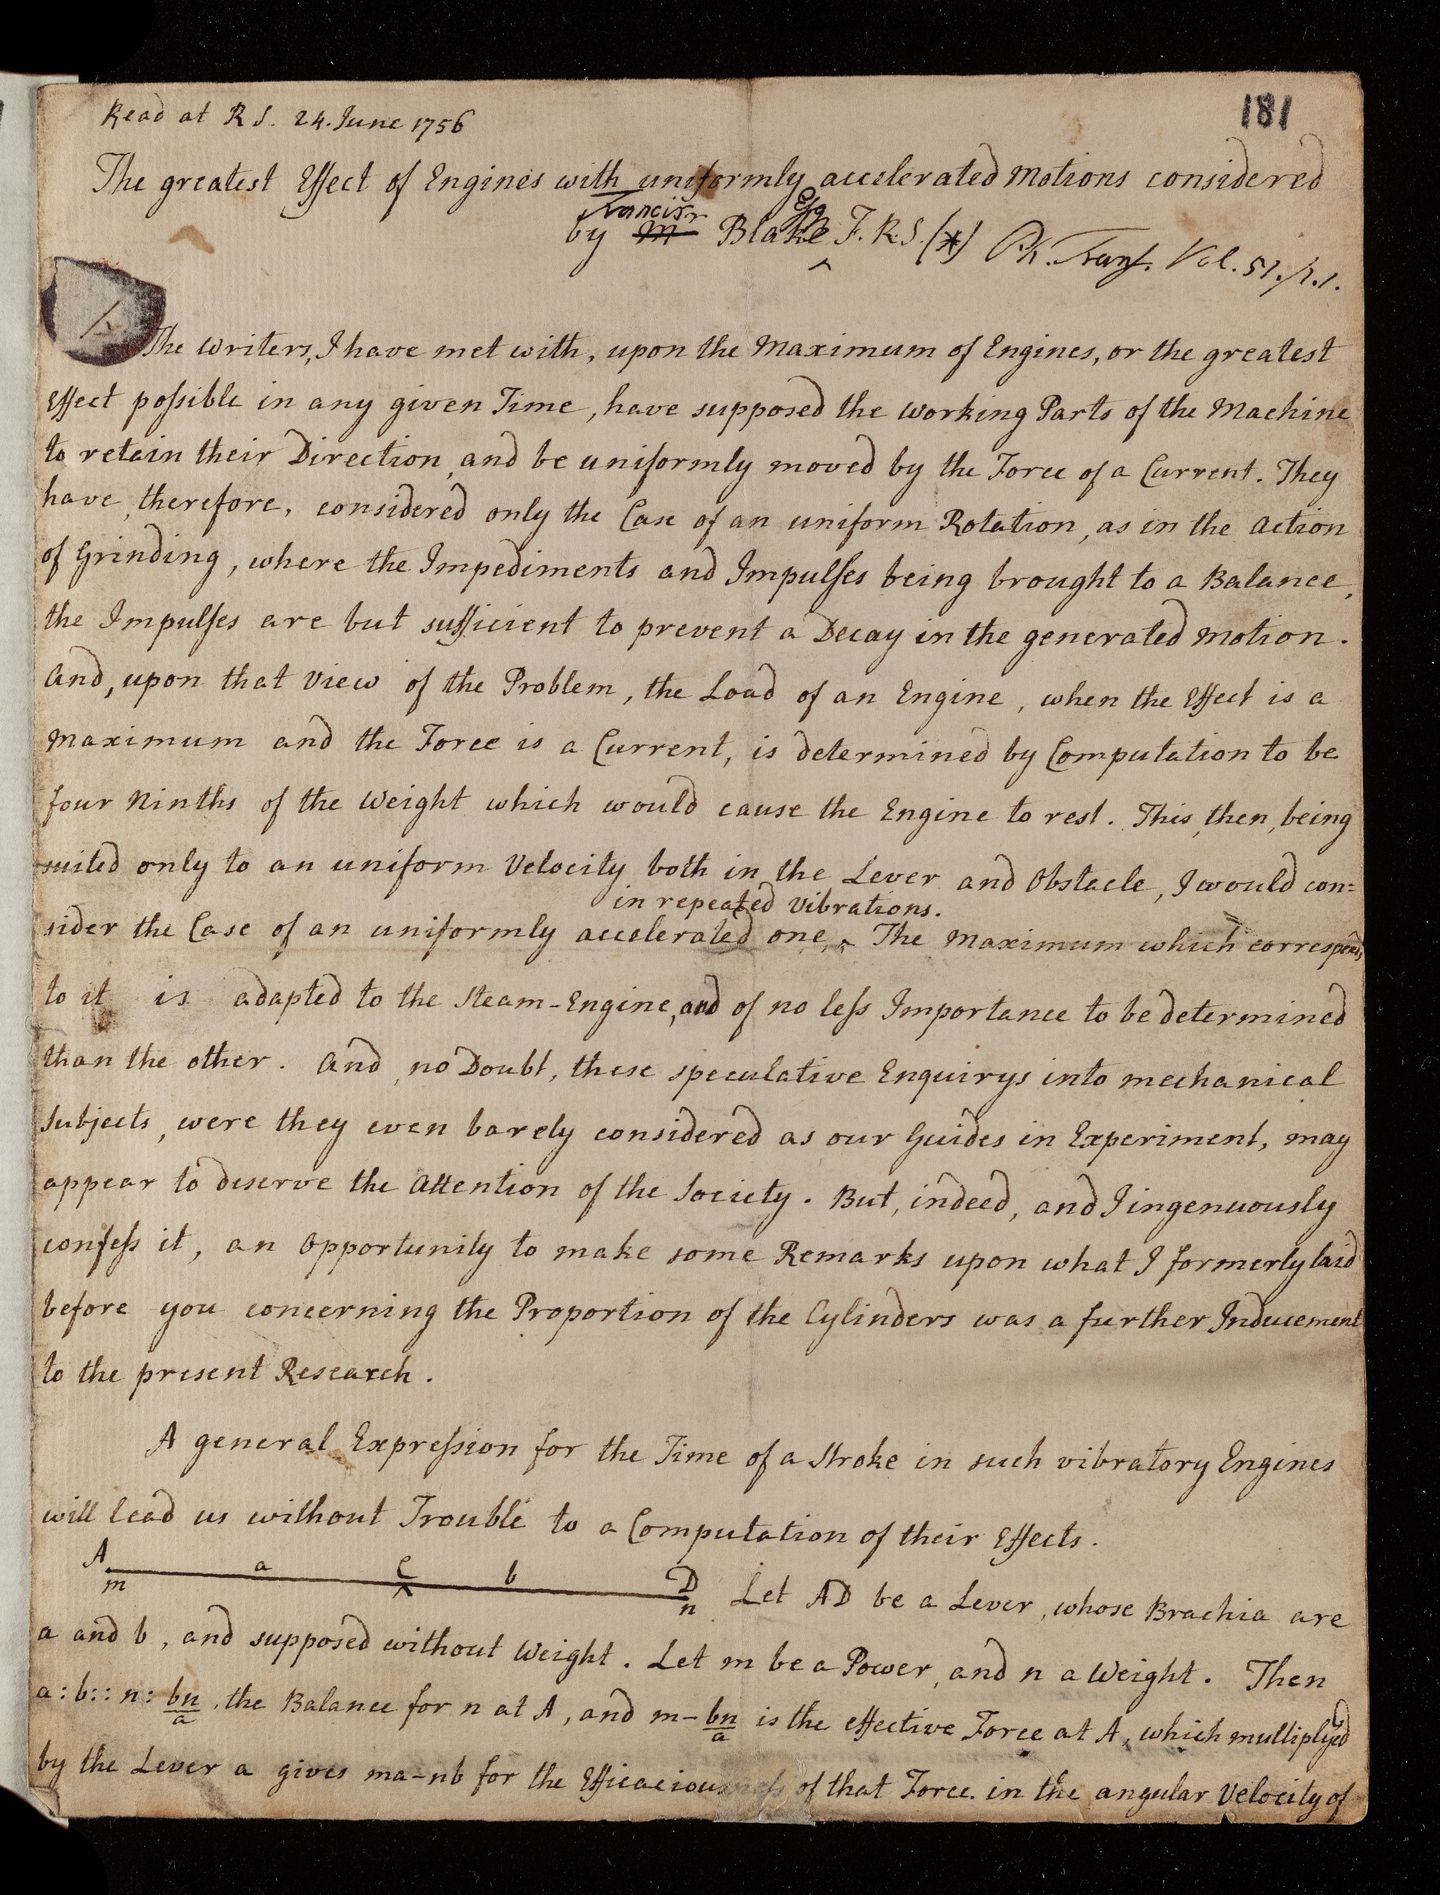 Read at R S. 24. June 1756
181
The greatest Effect of Engines with uniformly accelerated Motions considered
Francis Esq
by M Blake F.R.S. (*) Ph. Trans. Vol. 51. p. 1.
The Writers, I have met with, upon the Maximum of Engines, or the greatest
Effect possible in any given Time, have supposed the working Parts of the Machine
to retain their Direction, and be uniformly moved by the Force of a Current. They
have, therefore, considered only the Case of an uniform Rotation, as in the Action
of Grinding, where the Impediments and Impulses being brought to a Balance,
the Impulses are but sufficient to prevent a Decay in the generated Motion.
And, upon that View of the Problem, the Load of an Engine, when the Effect is a
Maximum and the Force is a Current, is determined by Computation to be
four Ninths of the Weight which would cause the Engine to rest. This, then, being
suited only to an uniform Velocity both in the Lever and Obstacle, I would con=
in repeated Vibrations.
sider the Case of an uniformly accelerated one, ^ The Maximum which corresponds
to it is adapted to the Steam-Engine, and of no less Importance to be determined
than the other. And, no Doubt, these speculative Enquirys into mechanical
Subjects, were they even barely considered as our Guides in Experiment, may
appear to deserve the Attention of the Society. But, indeed, and I ingenuously
confess it, an Opportunity to make some Remarks upon what I formerly laid
before you concerning the Proportion of the Cylinders was a further Inducement
to the present Research.
A general Expression for the Time of a Stroke in such vibratory Engines
will lead us without Trouble to a Computation of their Effects.
A a C b D
m n Let AD be a Lever, whose Brachia are
a and b, and supposed without Weight. Let m be a Power, and n a Weight. Then
a : b :: n : bn/a, the Balance for n at A, and m - bn/a is the effective Force at A, which multiplyed
by the Lever a gives ma-nb for the Efficaciousness of that Force in the angular Velocity of